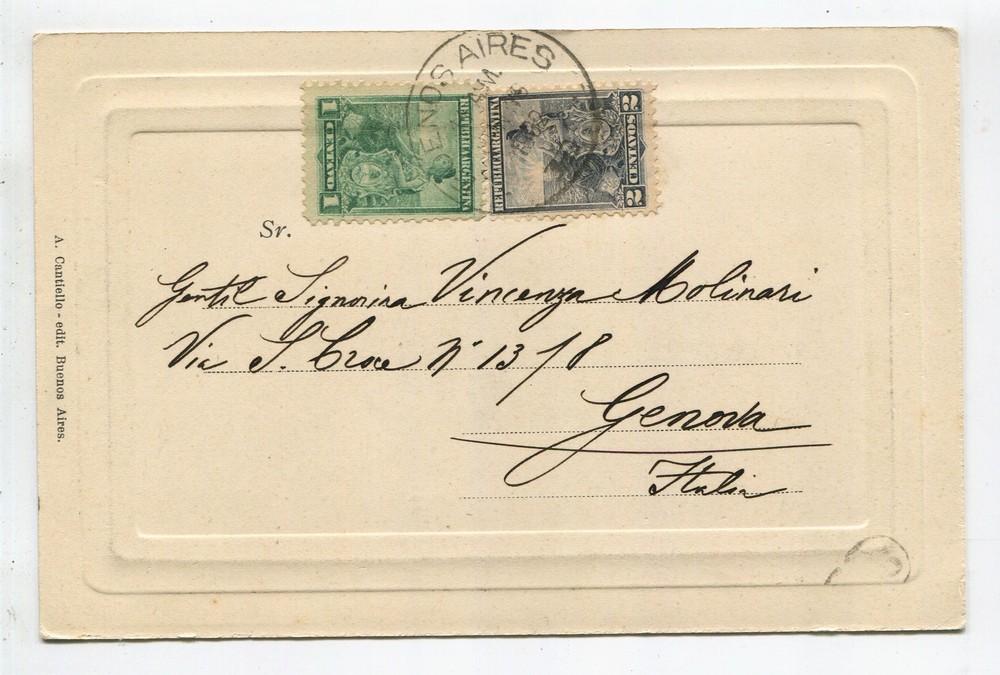 BUENOS AIRES
1 CENTAVO 1
REPUBLICA ARGENTINA
2 CENTAVOS 2
REPUBLICA ARGENTINA
Sr.
Gentil Signorina Vincenza Molinari
Via S. Croce N° 13/8
Genova
Italia
A. Cantiello - edit. Buenos Aires.